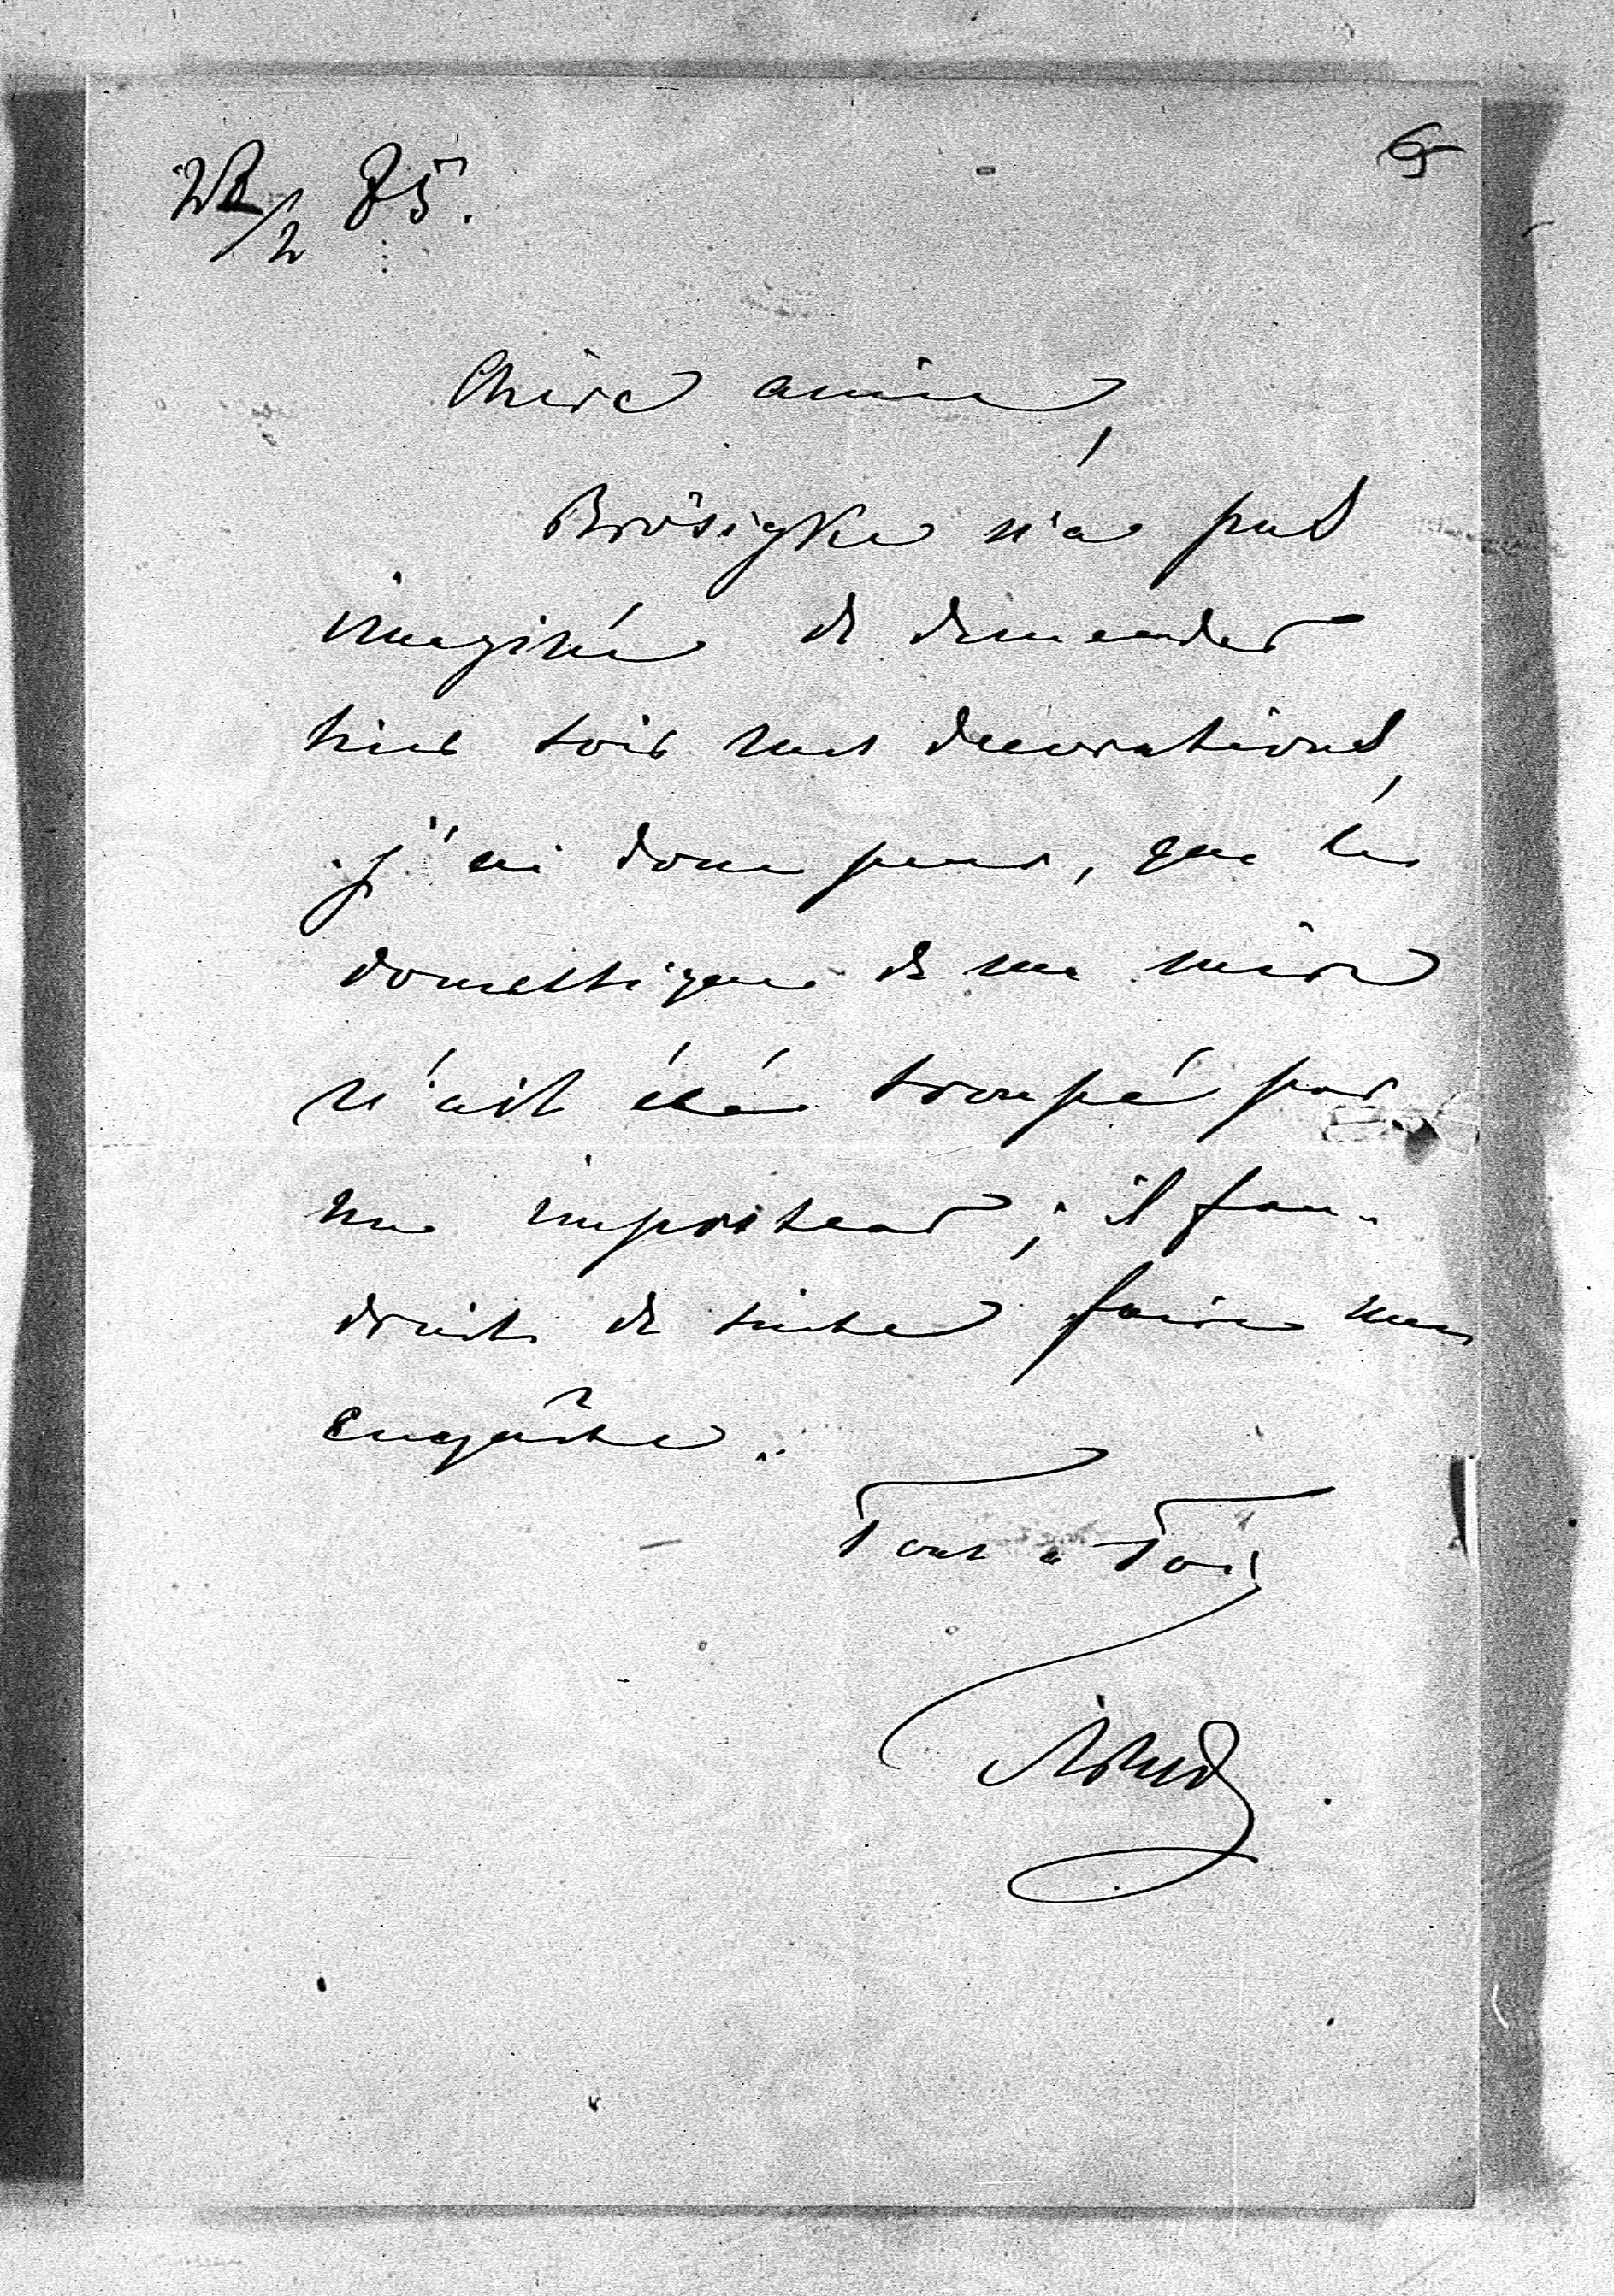 28/2 85.
Chère amie,
Brösigke n'a pas
imaginé de demander
hier soir mes decorations,
j'ai donc peur, que le
domestique de ma mère
n'ait été trompé par
un imposteur; il fau-
drait de suite faire une
enquête.
Tout à Toi